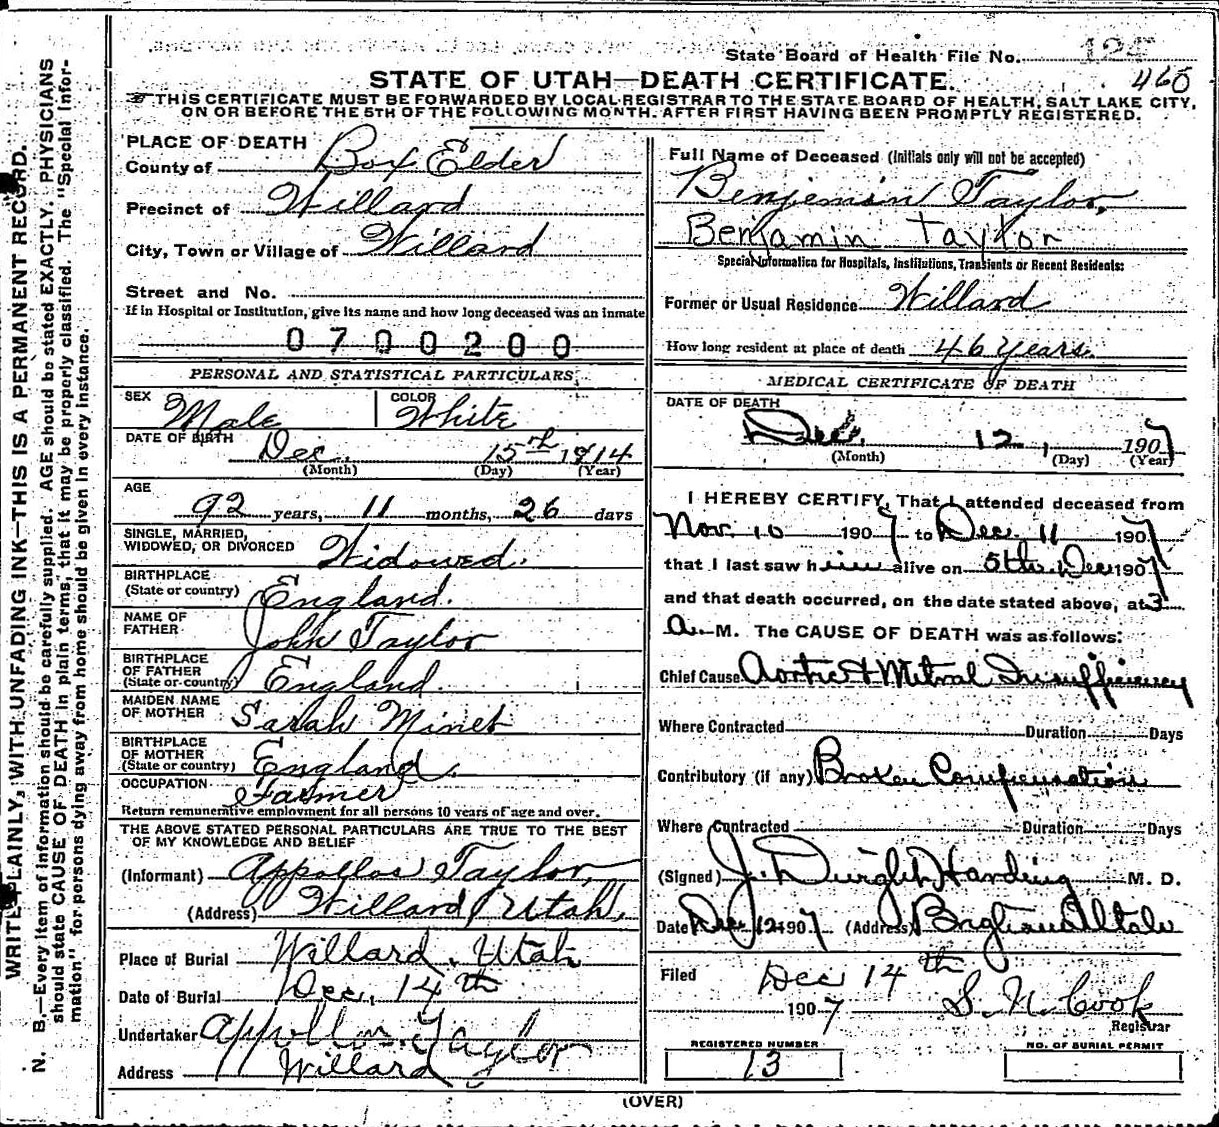 State Board of Health File No. 125
460
STATE OF UTAH—DEATH CERTIFICATE.
THIS CERTIFICATE MUST BE FORWARDED BY LOCAL REGISTRAR TO THE STATE BOARD OF HEALTH, SALT LAKE CITY,
ON OR BEFORE THE 5TH OF THE FOLLOWING MONTH. AFTER FIRST HAVING BEEN PROMPTLY REGISTERED.
WRITE PLAINLY, WITH UNFADING INK—THIS IS A PERMANENT RECORD.
N. B.—Every item of information should be carefully supplied. AGE should be stated EXACTLY. PHYSICIANS
should state CAUSE OF DEATH in plain terms, that it may be properly classified. The "Special Infor-
mation" for persons dying away from home should be given in every instance.
PLACE OF DEATH
County of Box Elder
Precinct of Willard
City, Town or Village of Willard
Street and No.
If in Hospital or Institution, give its name and how long deceased was an inmate
0700200
PERSONAL AND STATISTICAL PARTICULARS
SEX Male COLOR White
DATE OF BIRTH Dec. 15th 1814
(Month) (Day) (Year)
AGE
92 years, 11 months, 26 days
SINGLE, MARRIED,
WIDOWED, OR DIVORCED Widowed.
BIRTHPLACE
(State or country) England.
NAME OF
FATHER John Taylor
BIRTHPLACE
OF FATHER
(State or country) England.
MAIDEN NAME
OF MOTHER Sarah Miner
BIRTHPLACE
OF MOTHER
(State or country) England.
OCCUPATION
Farmer
Return remunerative employment for all persons 10 years of age and over.
THE ABOVE STATED PERSONAL PARTICULARS ARE TRUE TO THE BEST
OF MY KNOWLEDGE AND BELIEF
(Informant) Appollos Taylor,
(Address) Willard Utah,
Place of Burial Willard, Utah
Date of Burial Dec, 14th
Undertaker Appollos Taylor
Address Willard
Full Name of Deceased (Initials only will not be accepted)
Benjemin Taylor,
Benjamin Taylor
Special Information for Hospitals, Institutions, Transients or Recent Residents:
Former or Usual Residence Willard
How long resident at place of death 46 Years.
MEDICAL CERTIFICATE OF DEATH
DATE OF DEATH
Dec. 12, 1907
(Month) (Day) (Year)
I HEREBY CERTIFY, That I attended deceased from
Nov. 10 1907 to Dec. 11 1907
that I last saw him alive on 5th Dec 1907
and that death occurred, on the date stated above, at 3
a. M. The CAUSE OF DEATH was as follows:
Chief Cause Aortic & Mitral Insufficiency
Where Contracted Duration Days
Contributory (if any) Broken Compensation
Where Contracted Duration Days
(Signed) J. Dwight Harding M. D.
Date Dec 12 1907 (Address) Brigham Utah
Filed Dec 14th
1907 S. N. Cook
Registrar
REGISTERED NUMBER NO. OF BURIAL PERMIT
13
(OVER)